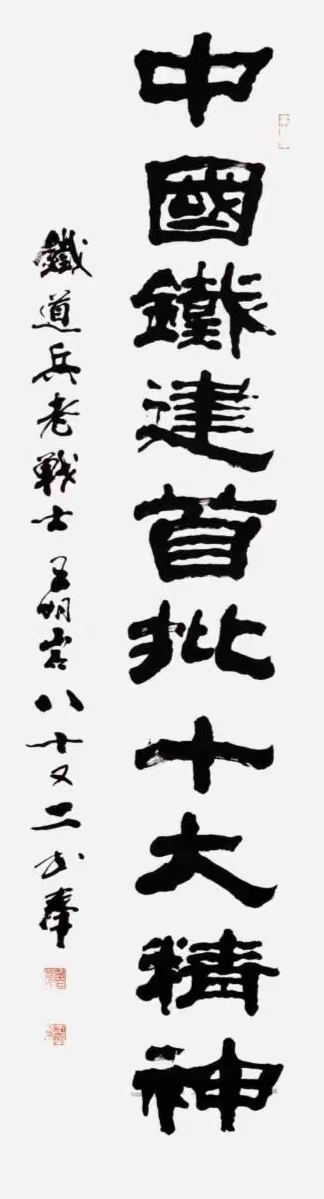 中國鐵建首批十大精神
鐵道兵老戰士吴明室八十又二書奉